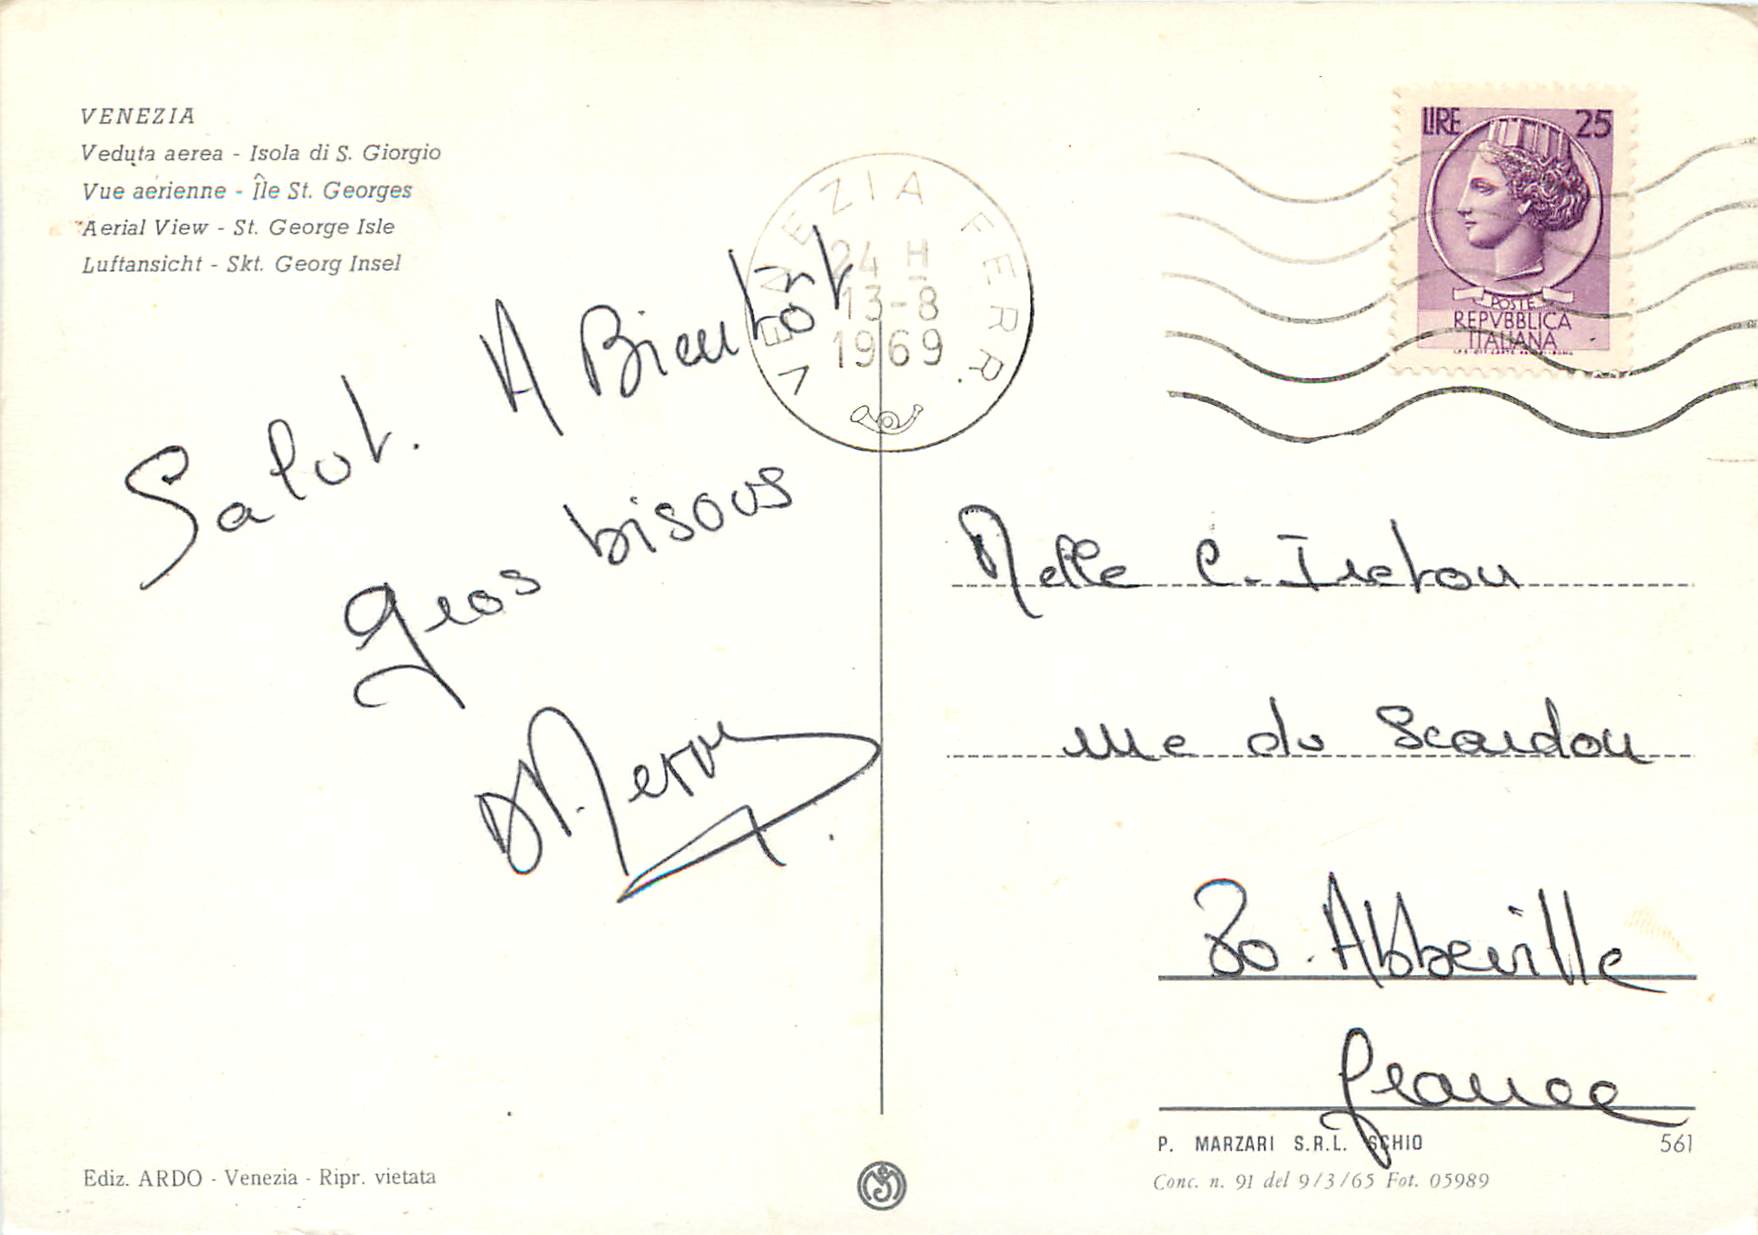 VENEZIA
Veduta aerea - Isola di S. Giorgio
Vue aérienne - Île St. Georges
Aerial View - St. George Isle
Luftansicht - Skt. Georg Insel
VENEZIA FERR.
24 H
13-8
1969
LIRE 25
POSTE
REPVBBLICA
ITALIANA
Salut. A Bientôt
gros bisous
Melle C.
rue du Scardon
80. Abbeville
france
P. MARZARI S.R.L. SCHIO 561
Conc. n. 91 del 9/3/65 Fot. 05989
Ediz. ARDO - Venezia - Ripr. vietata